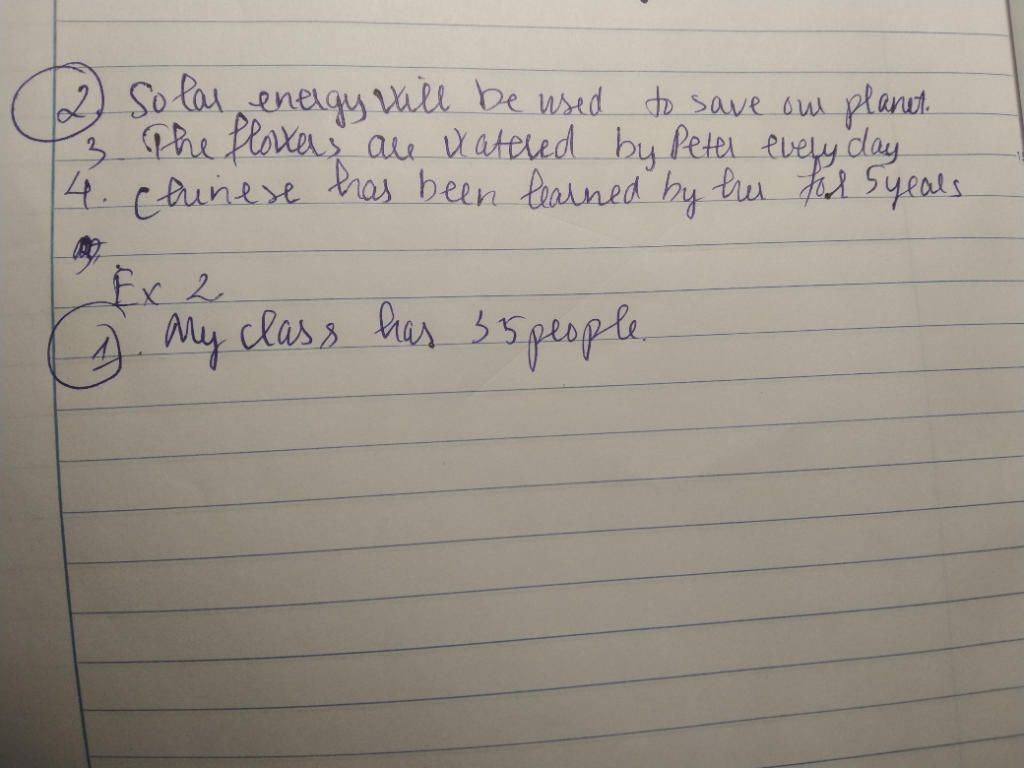 2) Solar energy will be used to save our planet.
3. The flowers are watered by Peter every day
4. Chinese has been learned by her for 5 years
Ex 2
1). My class has 35 people.